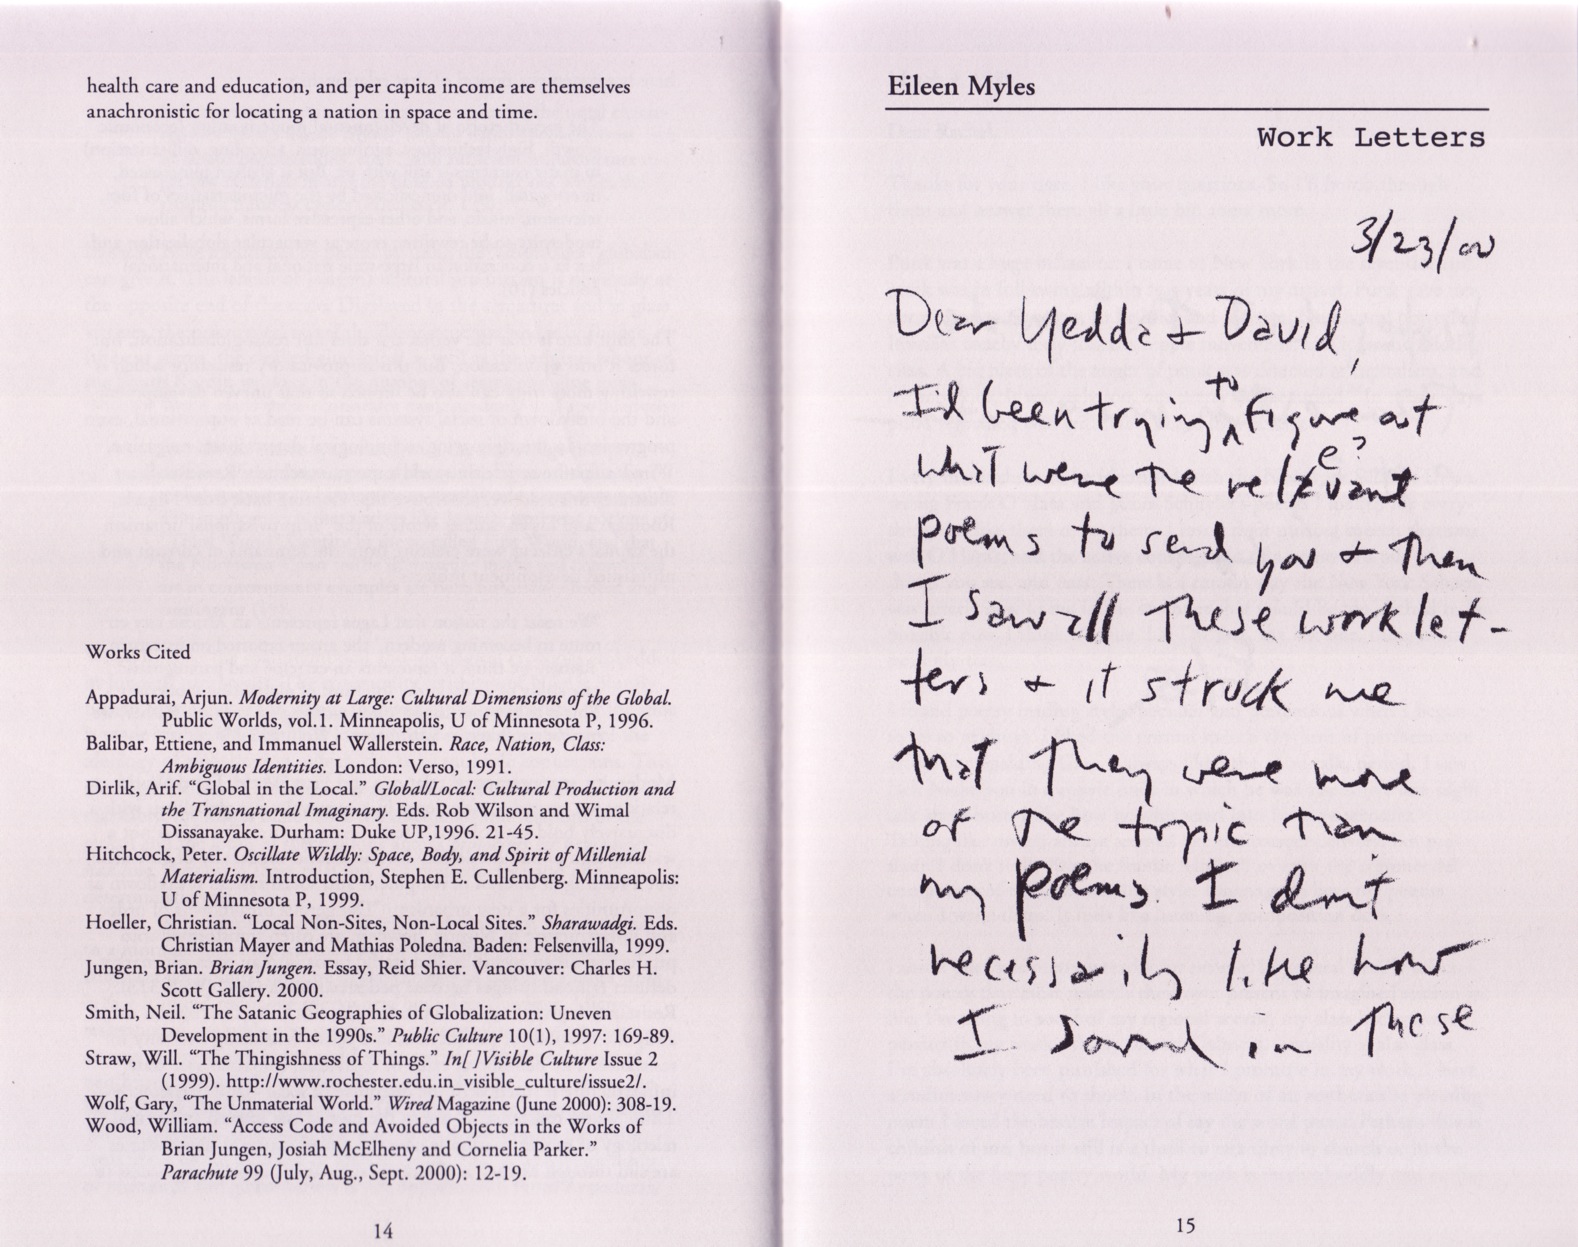 health care and education, and per capita income are themselves
anachronistic for locating a nation in space and time.
Works Cited
Appadurai, Arjun. Modernity at Large: Cultural Dimensions of the Global.
Public Worlds, vol.1. Minneapolis, U of Minnesota P, 1996.
Balibar, Ettiene, and Immanuel Wallerstein. Race, Nation, Class:
Ambiguous Identities. London: Verso, 1991.
Dirlik, Arif. “Global in the Local.” Global/Local: Cultural Production and
the Transnational Imaginary. Eds. Rob Wilson and Wimal
Dissanayake. Durham: Duke UP,1996. 21-45.
Hitchcock, Peter. Oscillate Wildly: Space, Body, and Spirit of Millenial
Materialism. Introduction, Stephen E. Cullenberg. Minneapolis:
U of Minnesota P, 1999.
Hoeller, Christian. “Local Non-Sites, Non-Local Sites.” Sharawadgi. Eds.
Christian Mayer and Mathias Poledna. Baden: Felsenvilla, 1999.
Jungen, Brian. Brian Jungen. Essay, Reid Shier. Vancouver: Charles H.
Scott Gallery. 2000.
Smith, Neil. “The Satanic Geographies of Globalization: Uneven
Development in the 1990s.” Public Culture 10(1), 1997: 169-89.
Straw, Will. “The Thingishness of Things.” In[ ]Visible Culture Issue 2
(1999). http://www.rochester.edu.in_visible_culture/issue2/.
Wolf, Gary, “The Unmaterial World.” Wired Magazine (June 2000): 308-19.
Wood, William. “Access Code and Avoided Objects in the Works of
Brian Jungen, Josiah McElheny and Cornelia Parker.”
Parachute 99 (July, Aug., Sept. 2000): 12-19.
14
Eileen Myles
Work Letters
3/23/00
Dear Yedda + David,
I'd been trying to figure out
what were the relevant
e?
poems to send you + then
I saw all these work let-
ters + it struck me
that they were more
of the topic than
my poems. I don't
necessarily like how
I sound in these
15